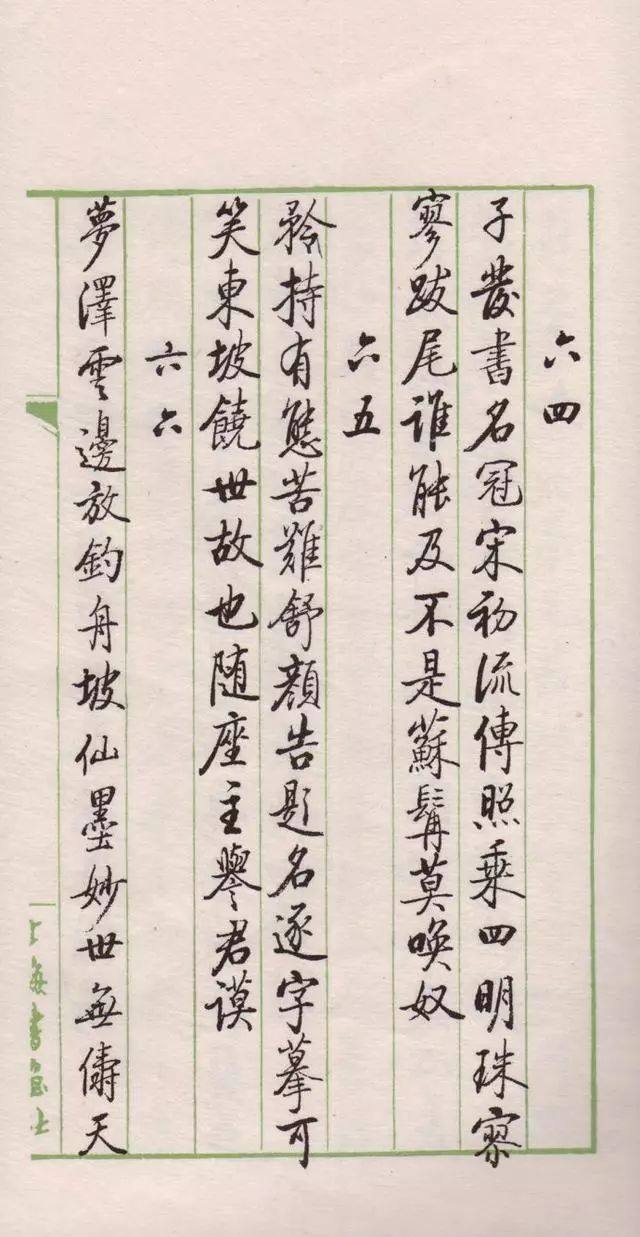 六四
子發書名冠宋初流傳照乘四明珠寥
寥跋尾誰能及不是蘇髯莫喚奴
六五
矜持有態苦難舒顏告題名逐字摹可
笑東坡饒世故也隨座主譽君謨
六六
夢澤雲邊放釣舟坡仙墨妙世無儔天
上海書畫社